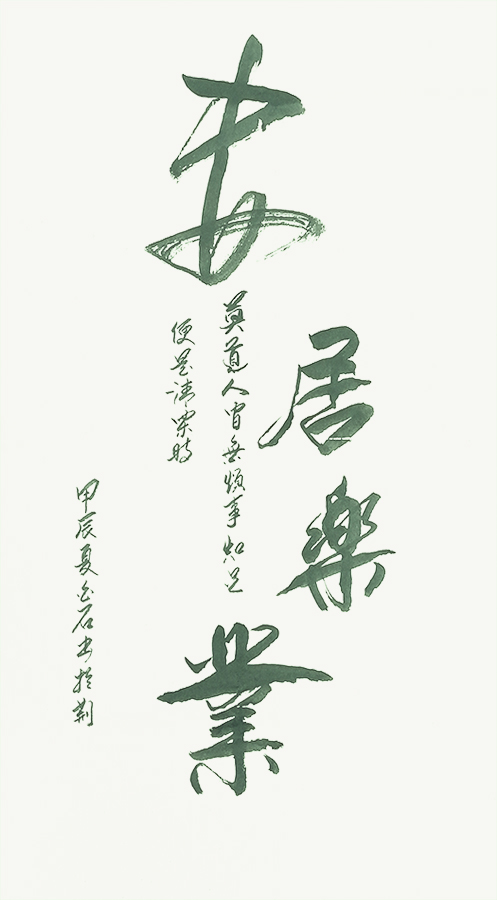 安
居
樂
業
莫道人間無煩事知足
便是清時
甲辰夏石書於荊